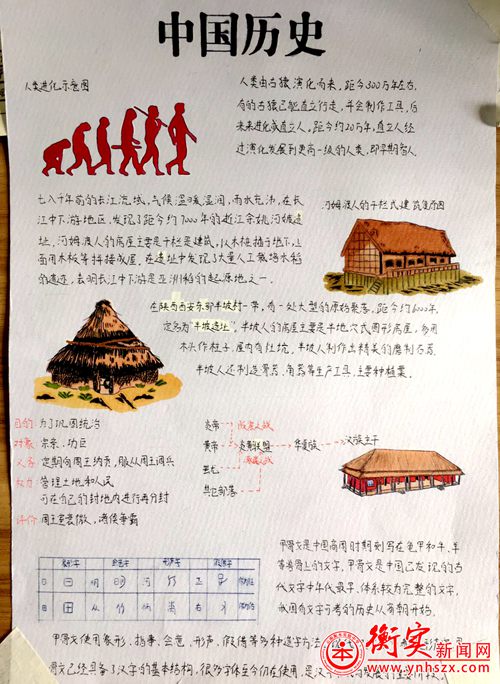 中国历史
人类进化示意图
人类由古猿演化而来，距今300万年左右，
有的古猿已能直立行走，并会制作工具，后
来进化成直立人，距今约20万年，直立人经
过演化发展到更高一级的人类，即早期智人。
七八千年前的长江流域，气候温暖湿润，雨水充沛，在长
江中下游地区，发现了距今约7000年的浙江余姚河姆渡遗
址，河姆渡人的房屋主要是干栏是建筑，以木桩插于地下，上
面用木板等拼接成屋，在遗址中发现了大量人工栽培水稻
的遗迹，表明长江中下游是亚洲稻的起源地之一。
河姆渡人的干栏式建筑复原图
在陕西西安东部半坡村一带，有一处大型的原始聚落，距今约6000年，
定名为"半坡遗址"，半坡人的房屋主要是半地穴式圆形房屋，多用
木头作柱子，屋内有灶坑，半坡人制作出精美的磨制石器，
半坡人还制造骨器、角器等生产工具，主要种植粟。
目的：为了巩固统治
对象：宗亲、功臣
义务：定期向周王纳贡，服从周王调兵
权力：管理土地和人民
可在自己的封地内进行再分封
评价：周王室衰微，诸侯争霸
炎帝
黄帝
炎黄联盟
华夏族
汉族主干
蚩尤
其它部落
甲骨文是中国商周时期刻写在龟甲和牛、羊
等兽骨上的文字，甲骨文是中国已发现的古
代文字中年代最早、体系较为完整的文字，
我国有文字可考的历史从商朝开始。
象形字 会意字 形声字
日 明 河
田 从
甲骨文使用象形、指事、会意、形声、假借等多种造字方法
骨文已经具备了汉字的基本结构，很多字体至今仍在使用，是汉字
衡实新闻网
www.ynhszx.com